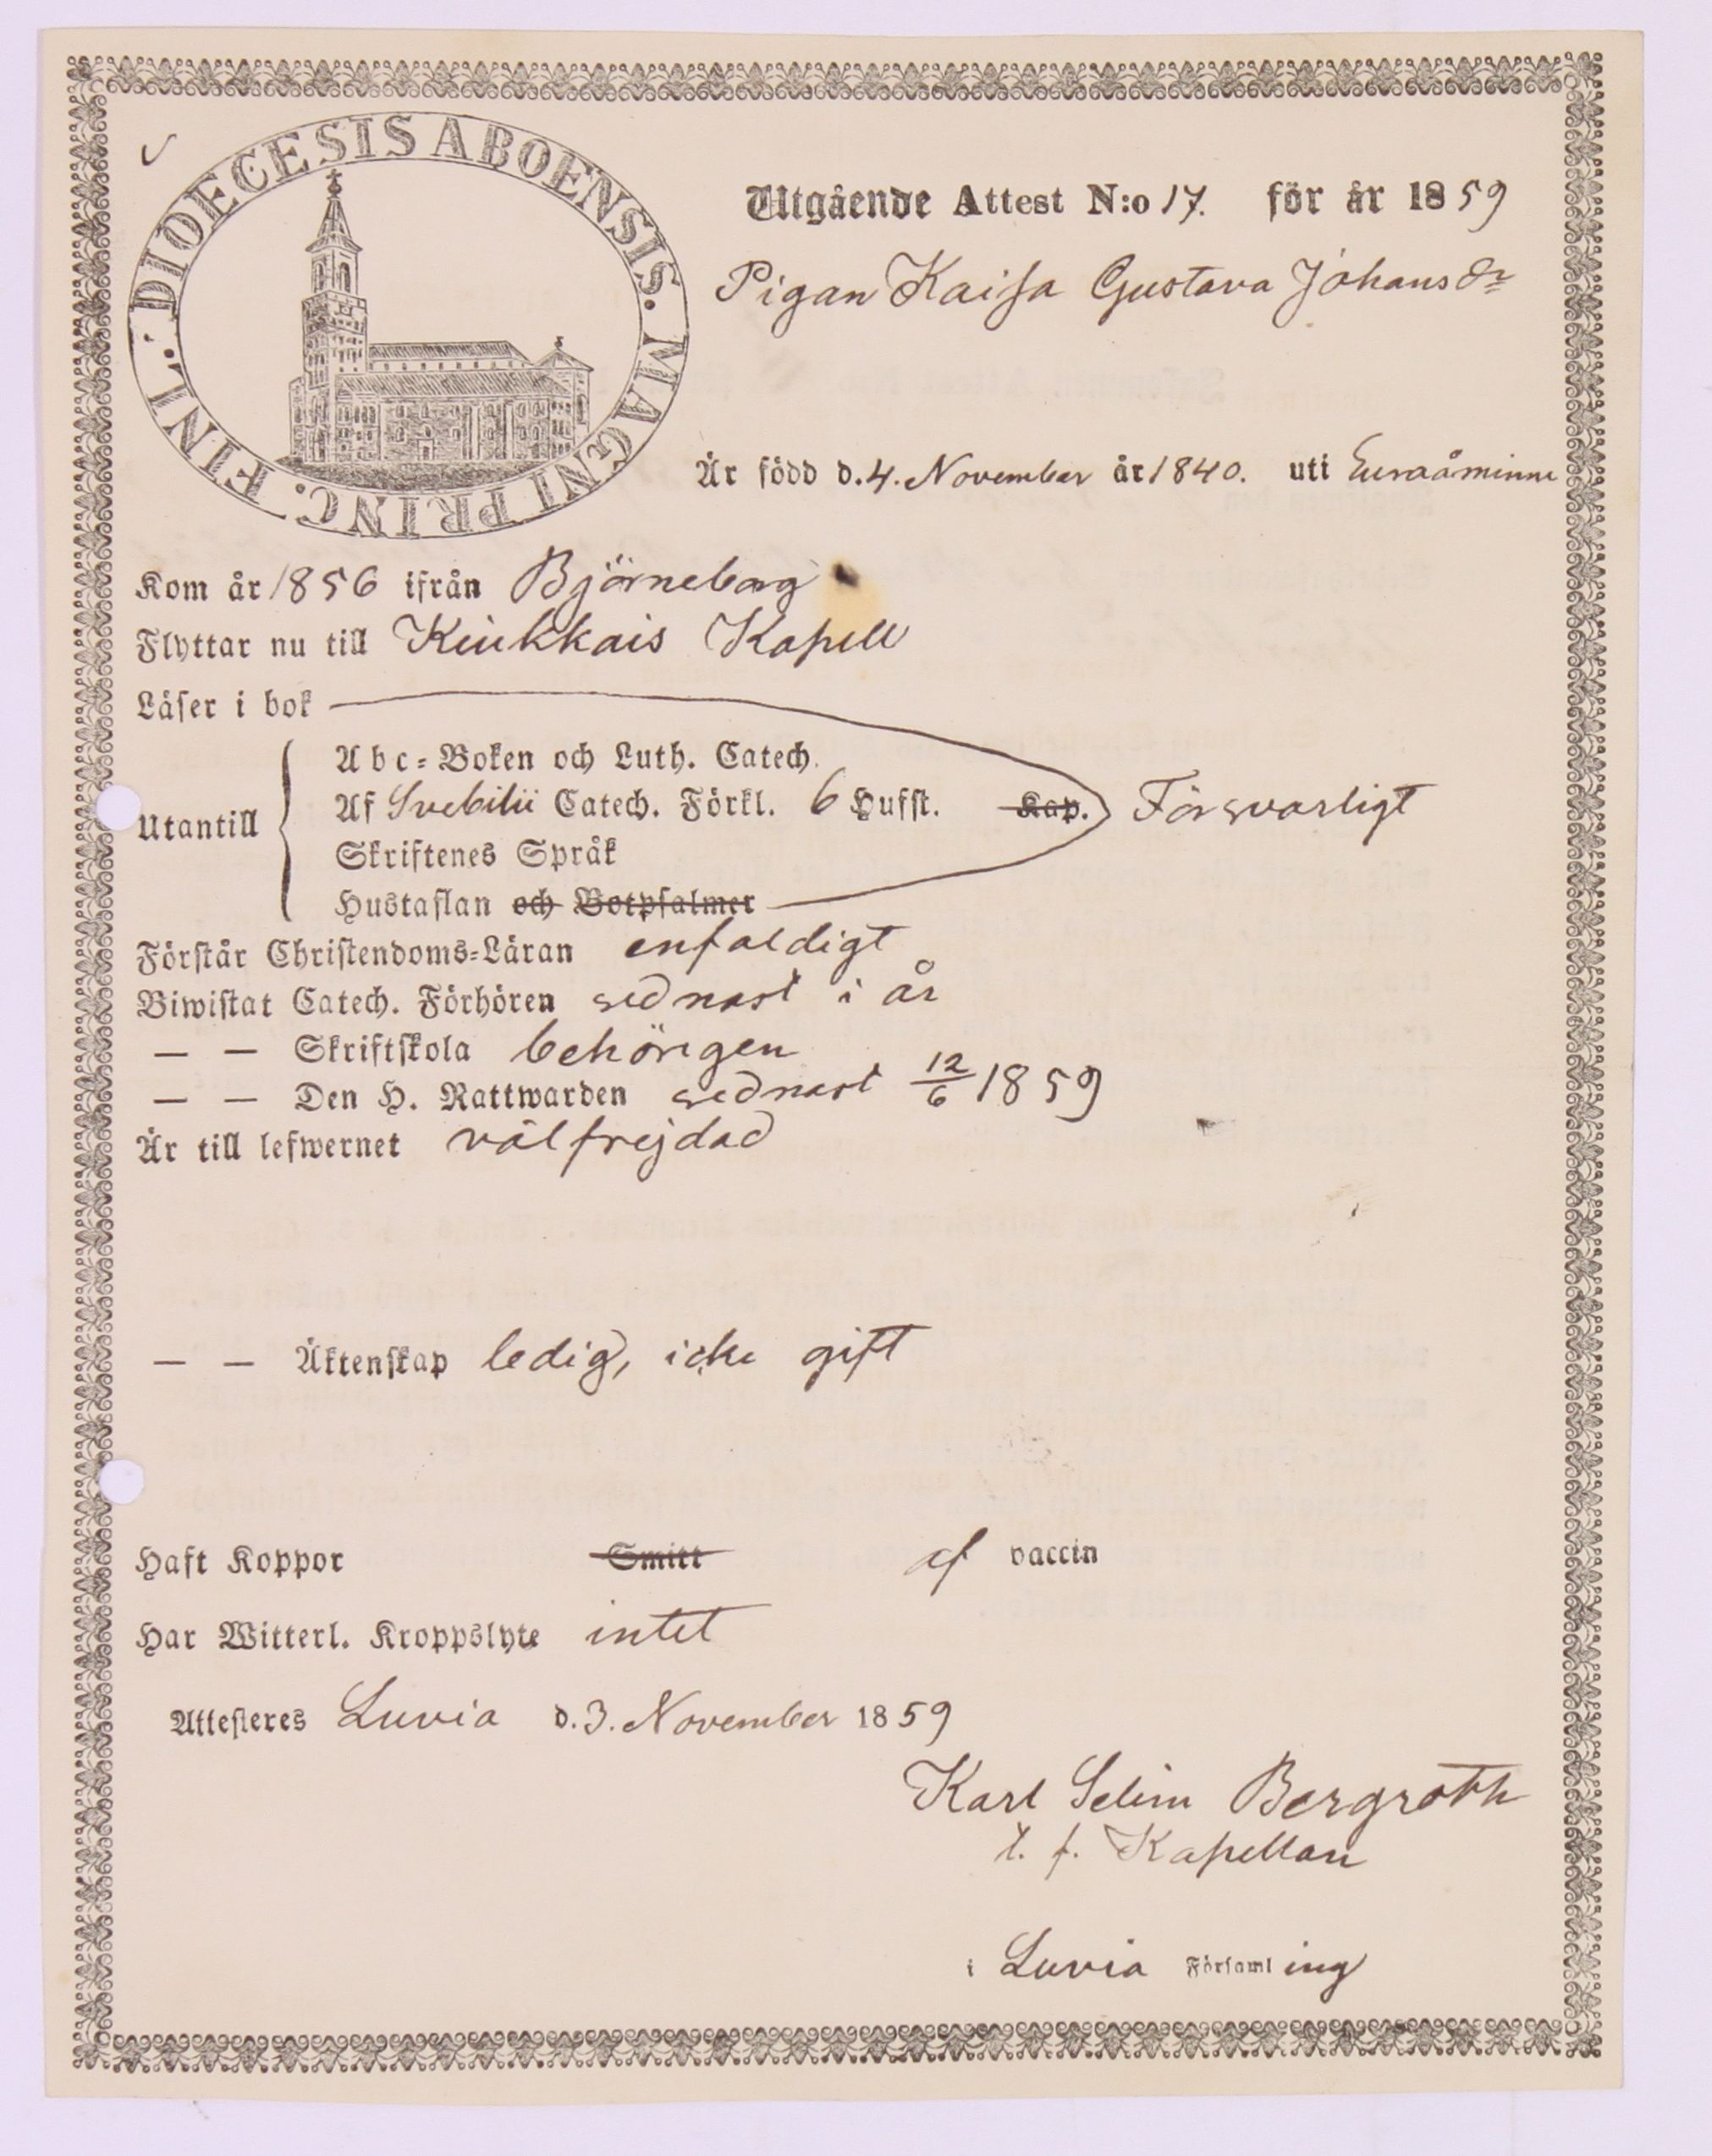 DIOECESIS ABOENSIS. MAGNI PRINC. FINL.
Utgående Attest N:o 17. för år 1859
Pigan Kaisa Gustava Johansdr
Är född d. 4. November år 1840. uti Euraåminne
Kom år 1856 ifrån Björneborg
Flyttar nu till Kiukkais Kapell
Läser i bok
Abc-Boken och Luth. Catech.
Utantill Af Svebilii Catech. Förkl. 6 Hufst. Kap. Försvarligt
Skriftenes Språk
Hustaflan och Botpsalmer
Förstår Christendoms-Läran enfaldigt
Biwistat Catech. Förhören sednast i år
— — Skriftskola behörigen
— — Den H. Nattwarden sednast 12/6 1859
Är till lefwernet välfrejdad
— — Äktenskap ledig, icke gift
Haft Koppor Smitt af vaccin
Har Witterl. Kroppslyte intet
Attesteres Luvia d. 3. November 1859
Karl Selim Bergroth
t. f. Kapellan
i Luvia Församling